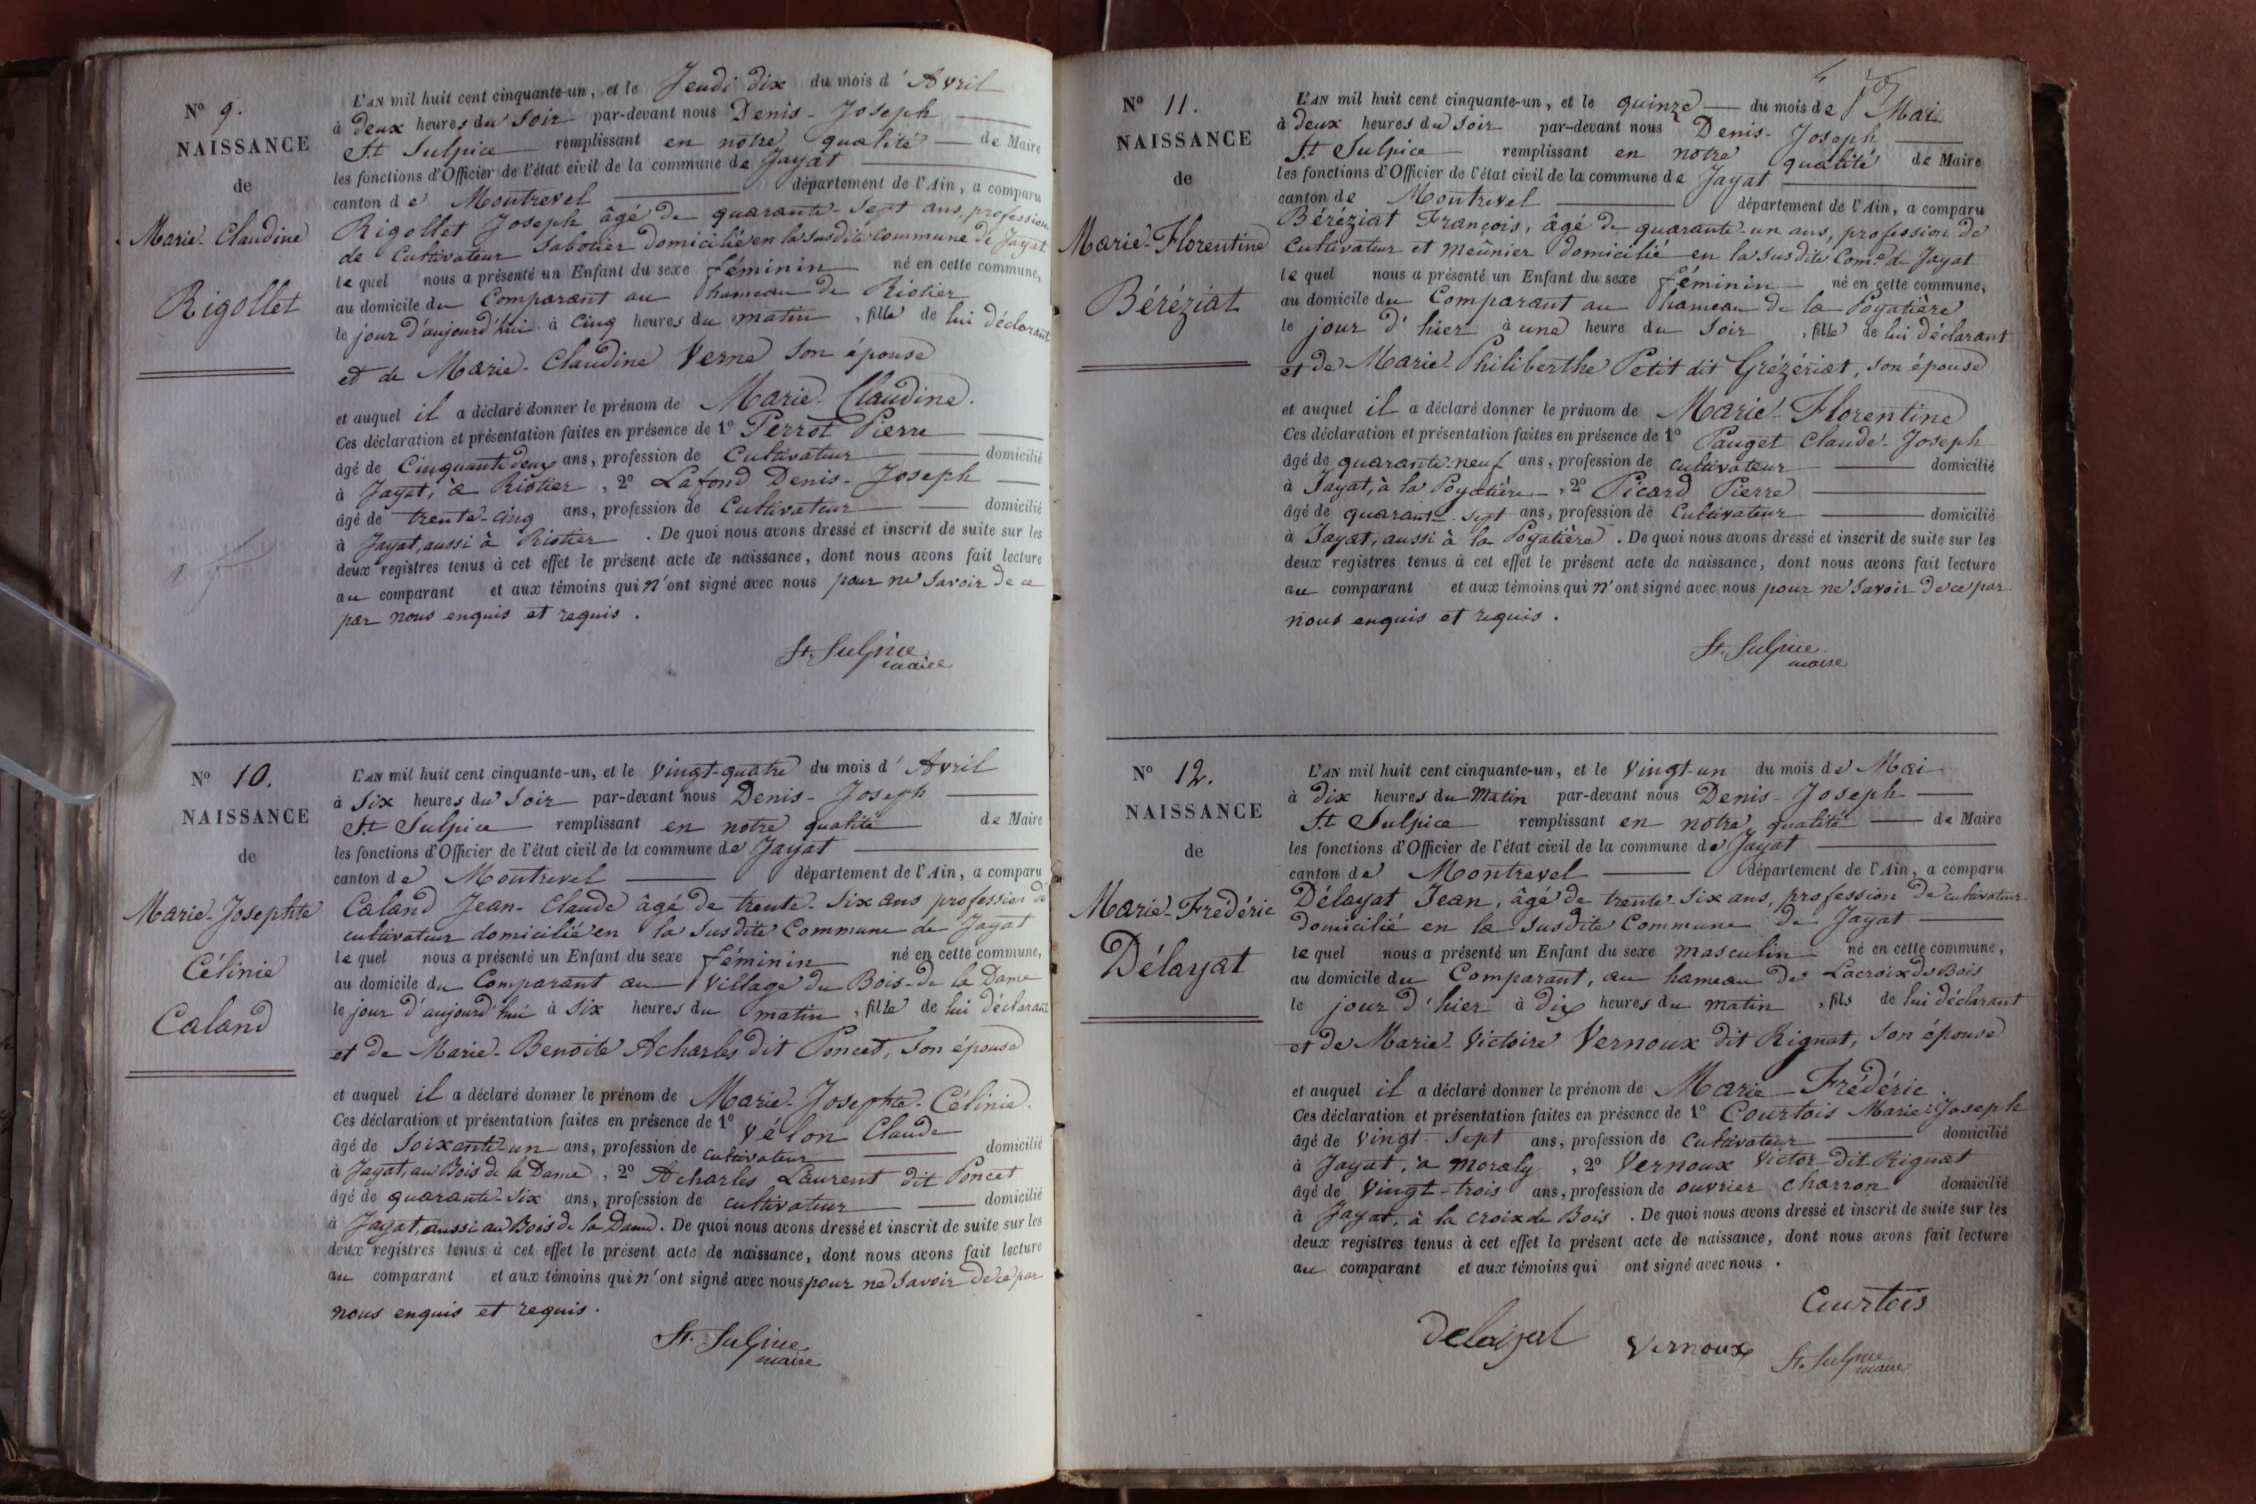 N° 9.
NAISSANCE
de
Marie-Claudine
Rigollet
L'AN mil huit cent cinquante-un, et le Jeudi dix du mois d'Avril
à deux heures du soir par-devant nous Denis-Joseph
St Sulpice remplissant en notre qualité de Maire
les fonctions d'Officier de l'état civil de la commune de Jayat
canton de Montrevel département de l'Ain, a comparu
Rigollet Joseph âgé de quarante-sept ans, profession
de Cultivateur Sabotier domicilié en la susdite commune de Jayat
lequel nous a présenté un Enfant du sexe féminin né en cette commune,
au domicile du Comparant au hameau de Riotier
le jour d'aujourd'hui à Cinq heures du matin, fille de lui déclarant
et de Marie-Claudine Verne son épouse
et auquel il a déclaré donner le prénom de Marie-Claudine.
Ces déclaration et présentation faites en présence de 1° Perrot Pierre
âgé de Cinquante deux ans, profession de Cultivateur domicilié
à Jayat, à Riotier, 2° Lafond Denis-Joseph
âgé de trente-cinq ans, profession de Cultivateur domicilié
à Jayat, aussi à Riotier. De quoi nous avons dressé et inscrit de suite sur les
deux registres tenus à cet effet le présent acte de naissance, dont nous avons fait lecture
au comparant et aux témoins qui n'ont signé avec nous pour ne savoir de ce
par nous enquis et requis.
St. Sulpice
maire
N° 10.
NAISSANCE
de
Marie-Josephte
Célinie
Caland
L'AN mil huit cent cinquante-un, et le vingt-quatre du mois d'Avril
à six heures du soir par-devant nous Denis-Joseph
St Sulpice remplissant en notre qualité de Maire
les fonctions d'Officier de l'état civil de la commune de Jayat
canton de Montrevel département de l'Ain, a comparu
Caland Jean-Claude âgé de trente-six ans profession de
cultivateur domicilié en la susdite Commune de Jayat
lequel nous a présenté un Enfant du sexe féminin né en cette commune,
au domicile du Comparant au village du Bois-de la Dame
le jour d'aujourd'hui à six heures du matin, fille de lui déclarant
et de Marie-Benoite Acharles dit Poncet, son épouse
et auquel il a déclaré donner le prénom de Marie-Josephte-Célinie.
Ces déclaration et présentation faites en présence de 1° Vélon Claude
âgé de soixante-un ans, profession de cultivateur domicilié
à Jayat, au Bois de la Dame, 2° Acharles Laurent dit Poncet
âgé de quarante-six ans, profession de cultivateur domicilié
à Jayat, aussi au Bois de la Dame. De quoi nous avons dressé et inscrit de suite sur les
deux registres tenus à cet effet le présent acte de naissance, dont nous avons fait lecture
au comparant et aux témoins qui n'ont signé avec nous pour ne savoir de ce par
nous enquis et requis.
St. Sulpice
maire
N° 11.
NAISSANCE
de
Marie-Florentine
Béréziat
L'AN mil huit cent cinquante-un, et le quinze du mois de Mai
à deux heures du soir par-devant nous Denis-Joseph
St Sulpice remplissant en notre qualité de Maire
les fonctions d'Officier de l'état civil de la commune de Jayat
canton de Montrevel département de l'Ain, a comparu
Béréziat François, âgé de quarante-un ans, profession de
Cultivateur et meûnier domicilié en la susdite Come de Jayat
lequel nous a présenté un Enfant du sexe féminin né en cette commune,
au domicile du Comparant au hameau de la Poyatière
le jour d'hier à une heure du soir, fille de lui déclarant
et de Marie-Philiberthe Petit dit Grézériat, son épouse
et auquel il a déclaré donner le prénom de Marie-Florentine
Ces déclaration et présentation faites en présence de 1° Pauget Claude-Joseph
âgé de quarante-neuf ans, profession de cultivateur domicilié
à Jayat, à la Poyatière, 2° Picard Pierre
âgé de quarante-sept ans, profession de Cultivateur domicilié
à Jayat, aussi à la Poyatière. De quoi nous avons dressé et inscrit de suite sur les
deux registres tenus à cet effet le présent acte de naissance, dont nous avons fait lecture
au comparant et aux témoins qui n'ont signé avec nous pour ne savoir de ce par
nous enquis et requis.
St. Sulpice
maire
N° 12.
NAISSANCE
de
Marie-Frédéric
Délayat
L'AN mil huit cent cinquante-un, et le vingt-un du mois de Mai
à dix heures du Matin par-devant nous Denis-Joseph
St Sulpice remplissant en notre qualité de Maire
les fonctions d'Officier de l'état civil de la commune de Jayat
canton de Montrevel département de l'Ain, a comparu
Délayat Jean, âgé de trente-six ans, profession de cultivateur
domicilié en la susdite Commune de Jayat
lequel nous a présenté un Enfant du sexe masculin né en cette commune,
au domicile du Comparant, au hameau de Lacroix de Bois
le jour d'hier à dix heures du matin, fils de lui déclarant
et de Marie-Victoire Vernoux dit Rignat, son épouse
et auquel il a déclaré donner le prénom de Marie-Frédéric.
Ces déclaration et présentation faites en présence de 1° Courtois Marie-Joseph
âgé de vingt-sept ans, profession de cultivateur domicilié
à Jayat, à moraly, 2° Vernoux Victor dit Rignat
âgé de vingt-trois ans, profession de ouvrier charron domicilié
à Jayat, à la croix de Bois. De quoi nous avons dressé et inscrit de suite sur les
deux registres tenus à cet effet le présent acte de naissance, dont nous avons fait lecture
au comparant et aux témoins qui ont signé avec nous.
Courtois
Delayat Vernoux St. Sulpice
maire